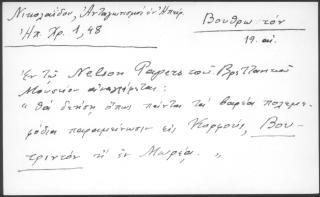 Νικολαΐδου, Ἀνταγωνισμοί ἐν Ἠπείρ.
Ἠπ. Χρ. 1, 48
Βουθρωτόν
19 αι.
Ἐν τῷ Nelson Papers τοῦ Βρεττανικοῦ
Μουσείου ἀναγράφεται:
"θά δεήσῃ ὅπως πάντα τά βαρέα πολεμε-
φόδια παραμείνωσιν εἰς Κορφούς, Βου-
τριντόν ἤ ἐν Μωρέᾳ. "